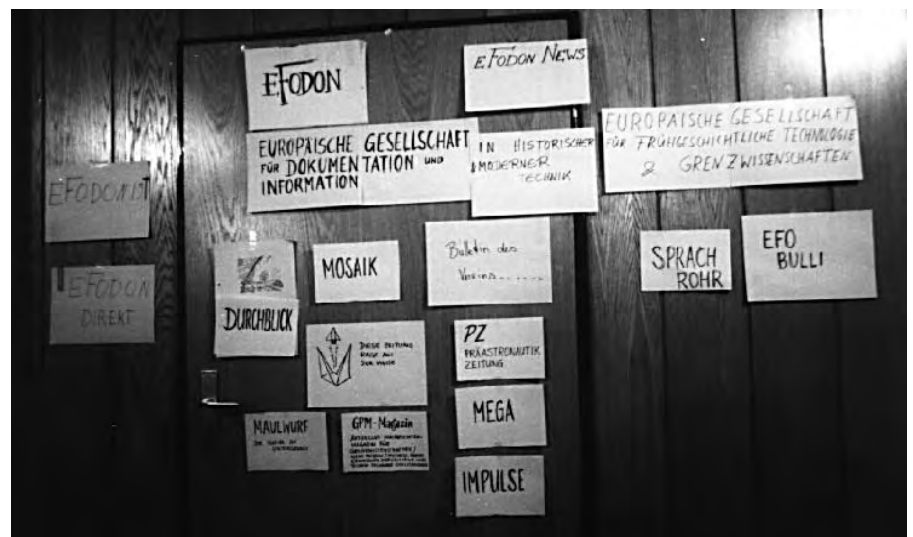 EFODON
EFODON NEWS
EUROPÄISCHE GESELLSCHAFT
FÜR DOKUMENTATION UND
INFORMATION
IN HISTORISCHER
& MODERNER
TECHNIK
EUROPÄISCHE GESELLSCHAFT
FÜR FRÜHGESCHICHTLICHE TECHNOLOGIE
& GRENZWISSENSCHAFTEN
EFODON
DIREKT
DURCHBLICK
MOSAIK
Bulletin des
Vereins.......
SPRACH
ROHR
EFO
BULLI
DIESE ZEITUNG
PZ
PRÄASTRONAUTIK
ZEITUNG
MAULWURF
GPM-Magazin
MEGA
IMPULSE